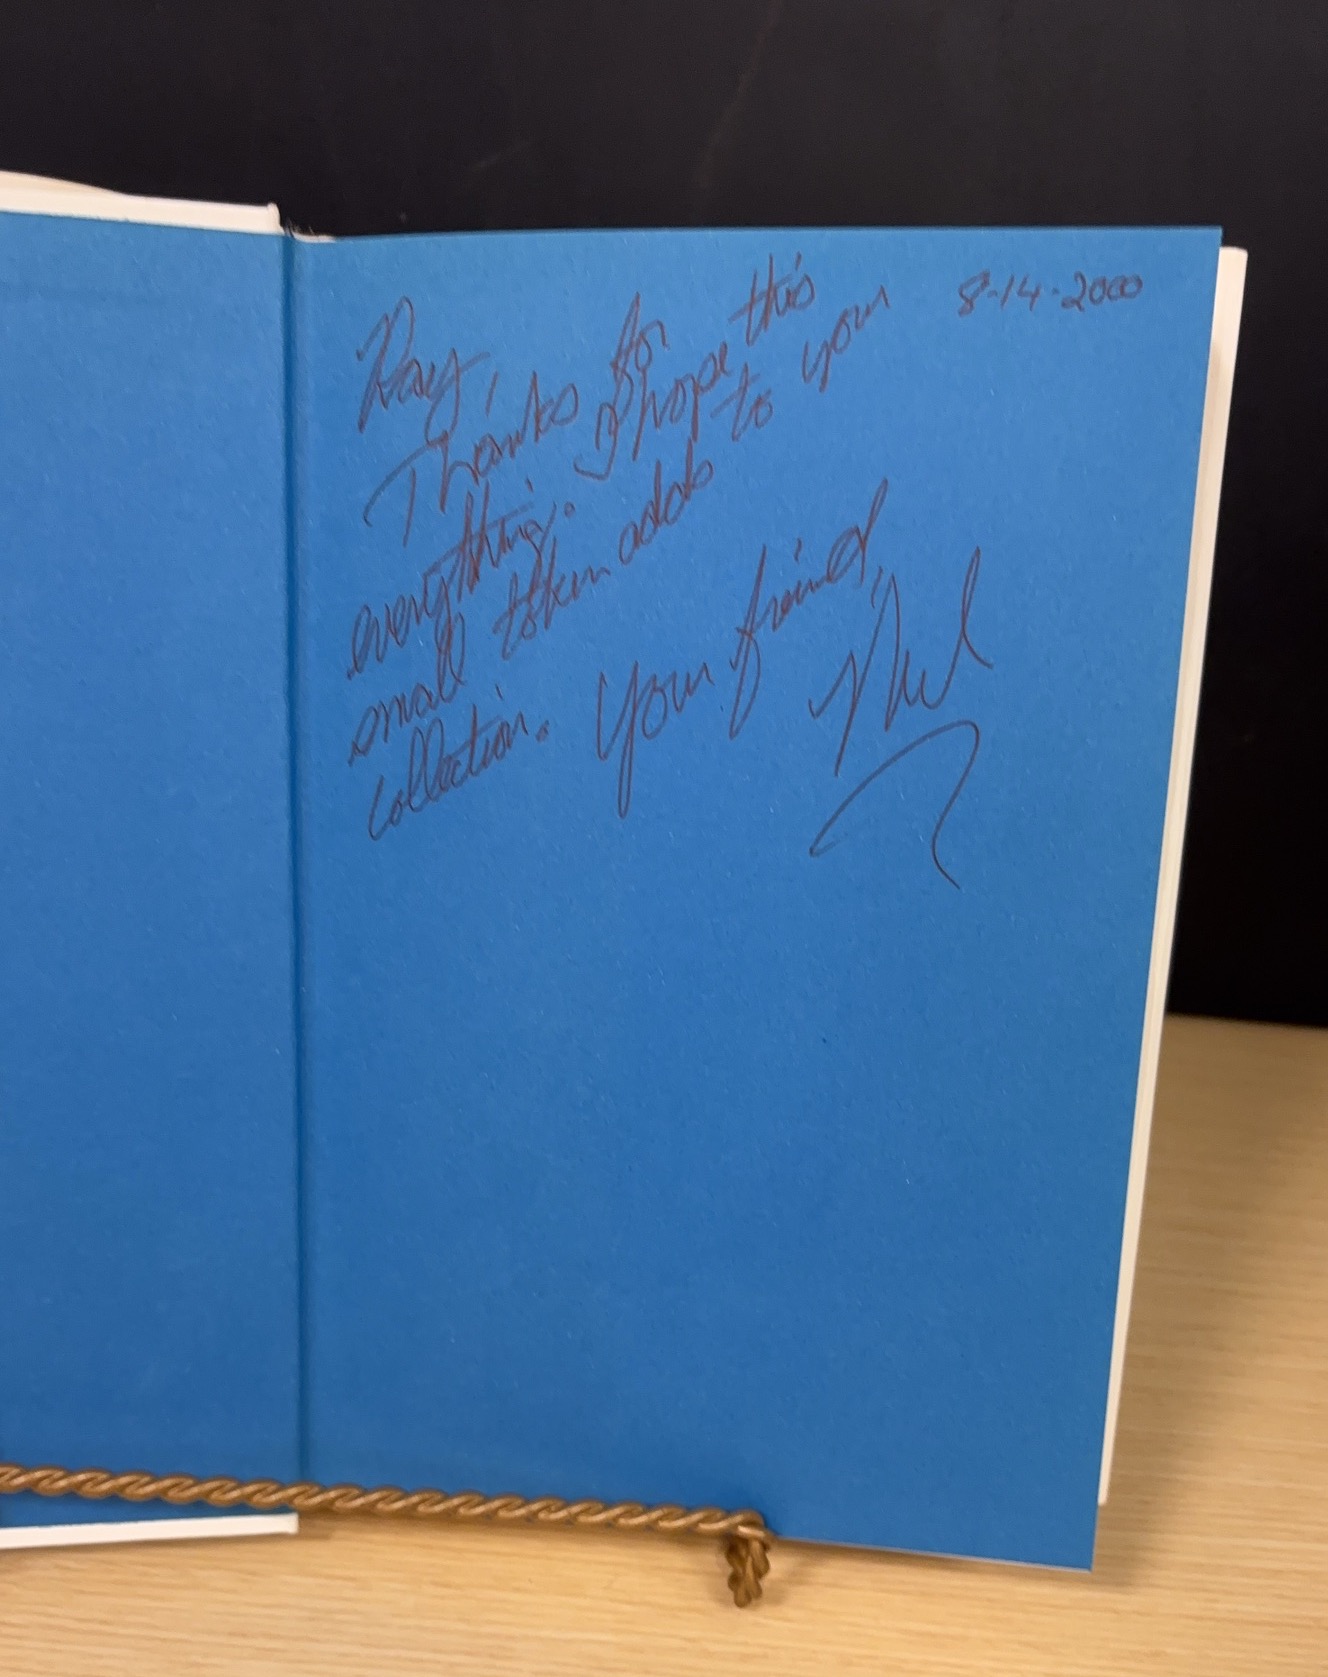 8-14-2000
Ray,
Thanks for
everything. I hope this
small token adds to your
collection. Your friend,